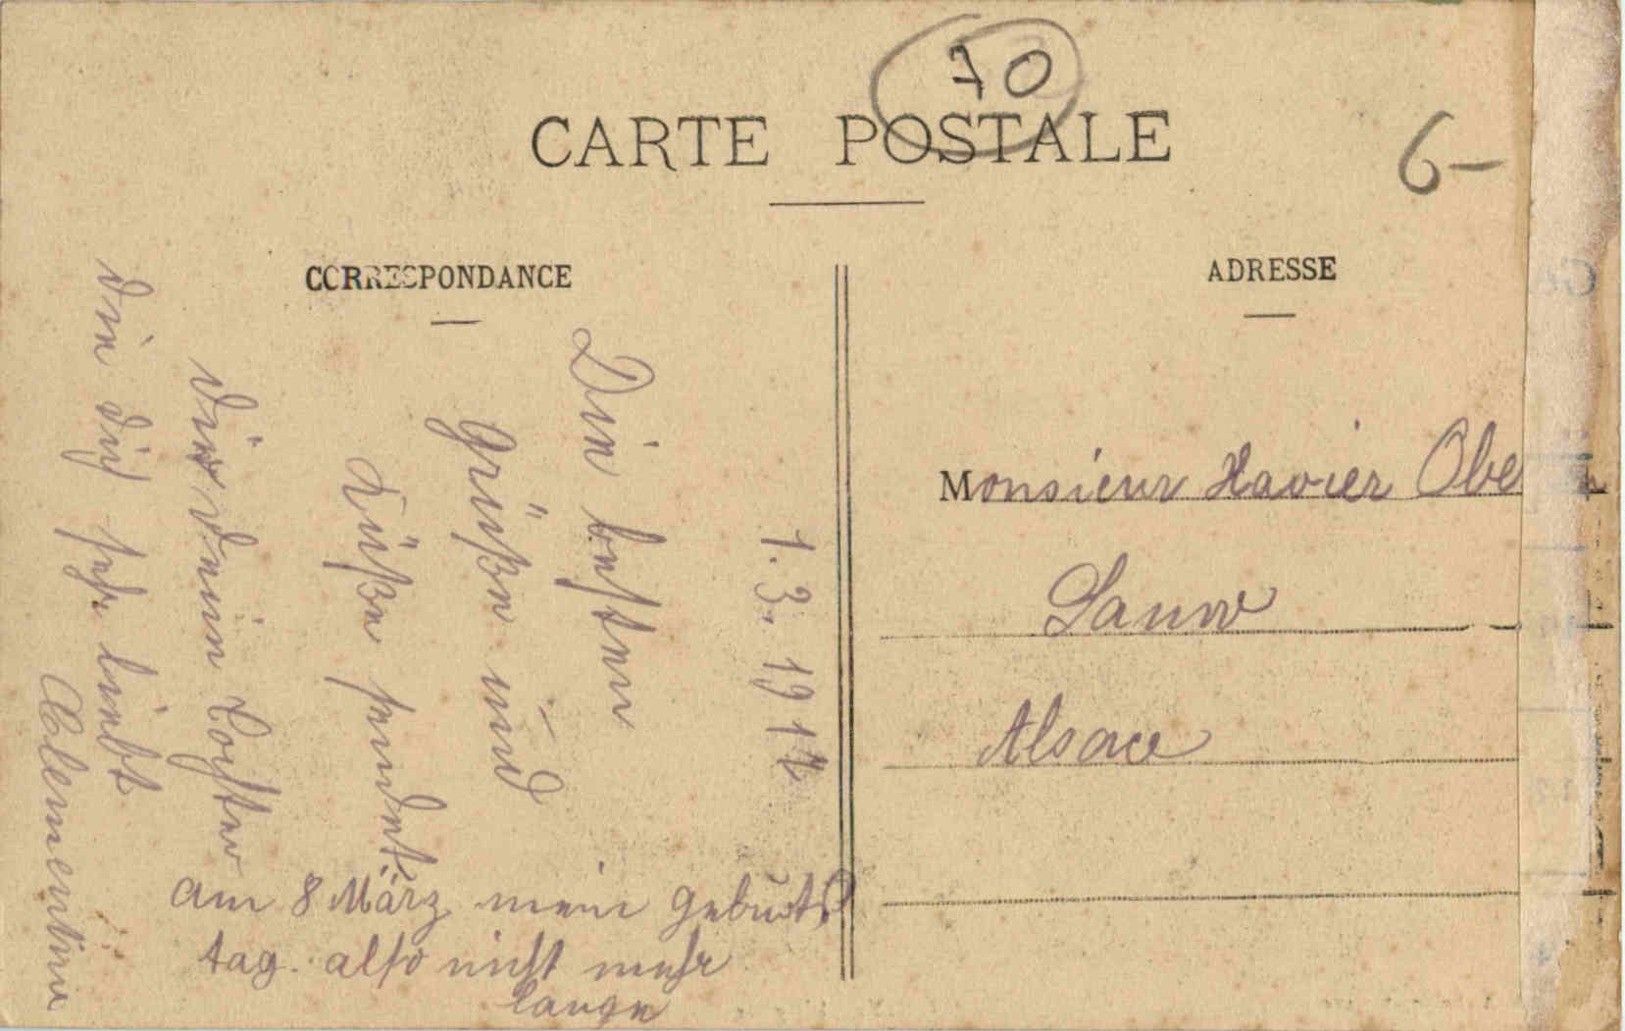 70
CARTE POSTALE
6-
CORRESPONDANCE
ADRESSE
1. 3. 1917
Die besten
Grüße und
Küße sendet
dir dein Tochter
die dich sehr liebt
Clementine
am 8 März mein geburts
tag. also nicht mehr
lange
Monsieur Xavier Obe
Sanw
Alsace